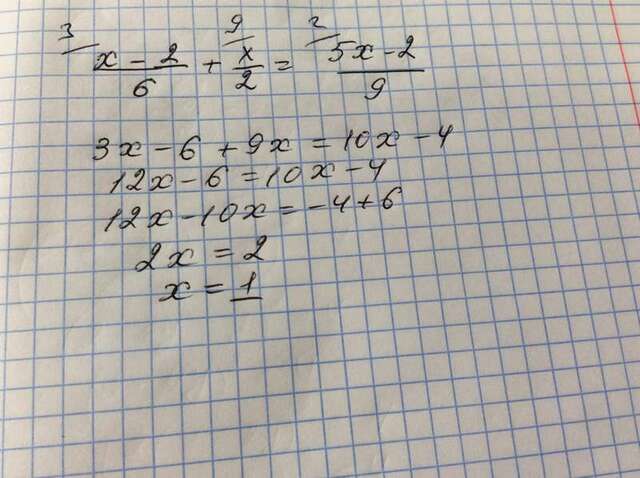 3 9 2
x - 2 / 6 + x / 2 = 5x - 2 / 9
3x - 6 + 9x = 10x - 4
12x - 6 = 10x - 4
12x - 10x = -4 + 6
2x = 2
x = 1